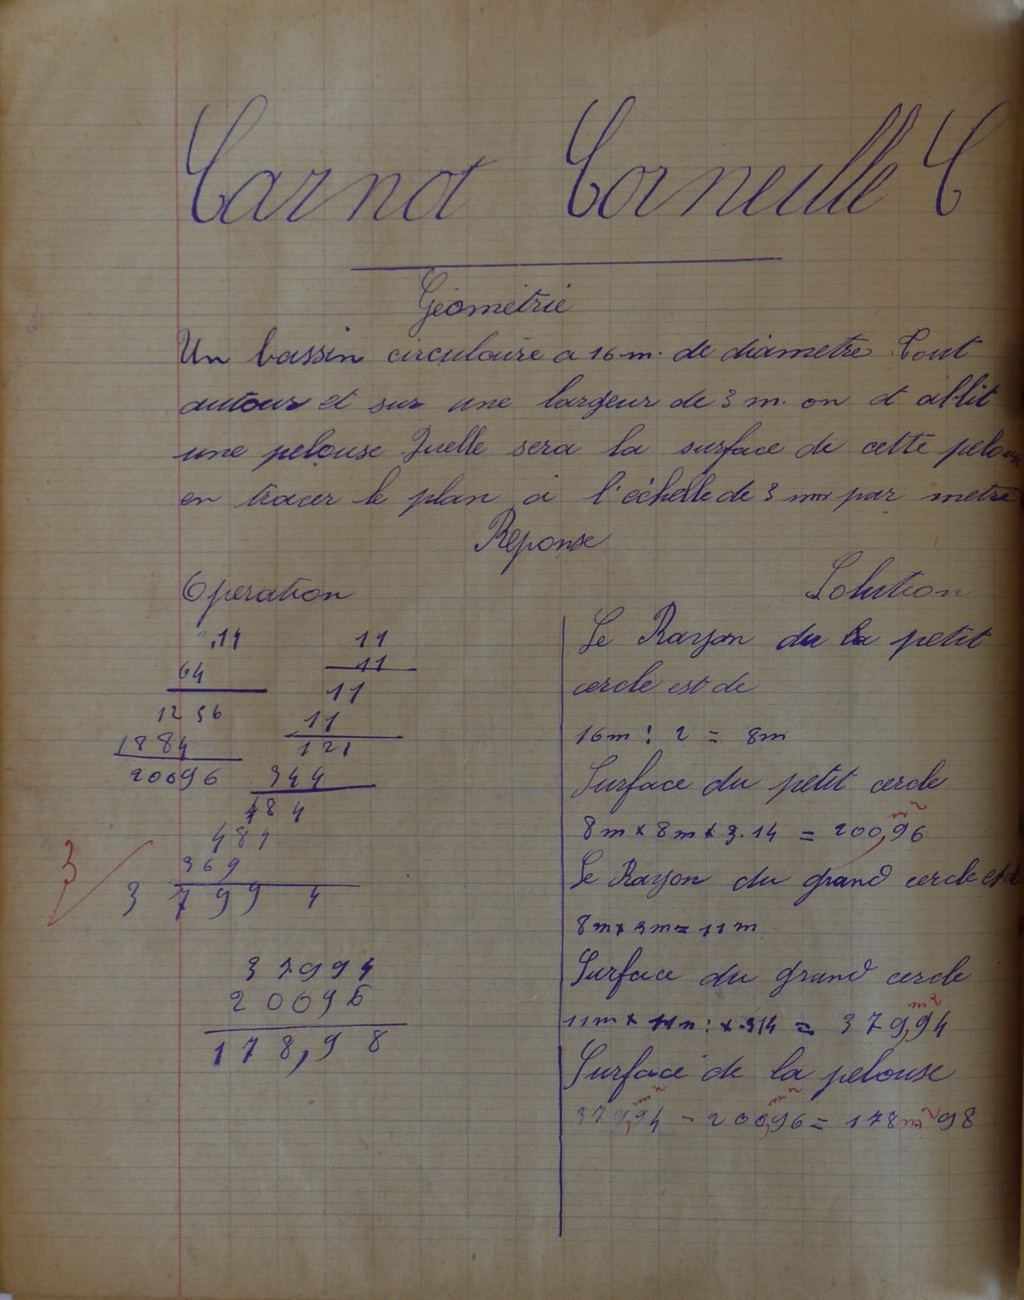 Carnot Corneille C
Géométrie
Un bassin circulaire a 16 m. de diametre Tout
autour et sur une largeur de 3 m. on et ablit
une pelouse Quelle sera la surface de cette pelouse
en tracer le plan à l'échelle de 3 mm par metre
Réponse
Operation
,14
64
1256
1884
20096
11
11
11
11
121
344
484
484
369
3 799 4
3
37994
20096
178,98
Solution
Le Rayon du la petit
cercle est de
16m : 2 = 8m
Surface du petit cercle
8m x 8m x 3.14 = 200,96 m²
Le Rayon du grand cercle est d
8m x 3m = 11m
Surface du grand cercle
11m x 11m : x .314 = 379,94 m²
Surface de la pelouse
379,94 m² - 200,96 m² = 178m² 98